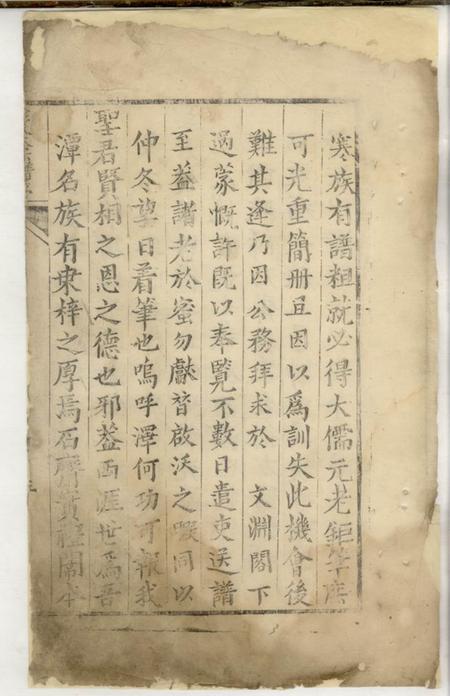 寒族有譜粗就必得大儒元老鉅筆庶
可光重簡册且因以爲訓失此機會後
難其逢乃因公務拜求於 文淵閣下
過蒙慨許既以奉覽不數日遣吏送譜
至葢譜老於蜜勿獻替啟沃之暇同以
仲冬望日着筆也嗚呼澤何功可報我
聖君賢相之恩之德也邪葢西涯世爲吾
潭名族有桒梓之厚焉石齊實程